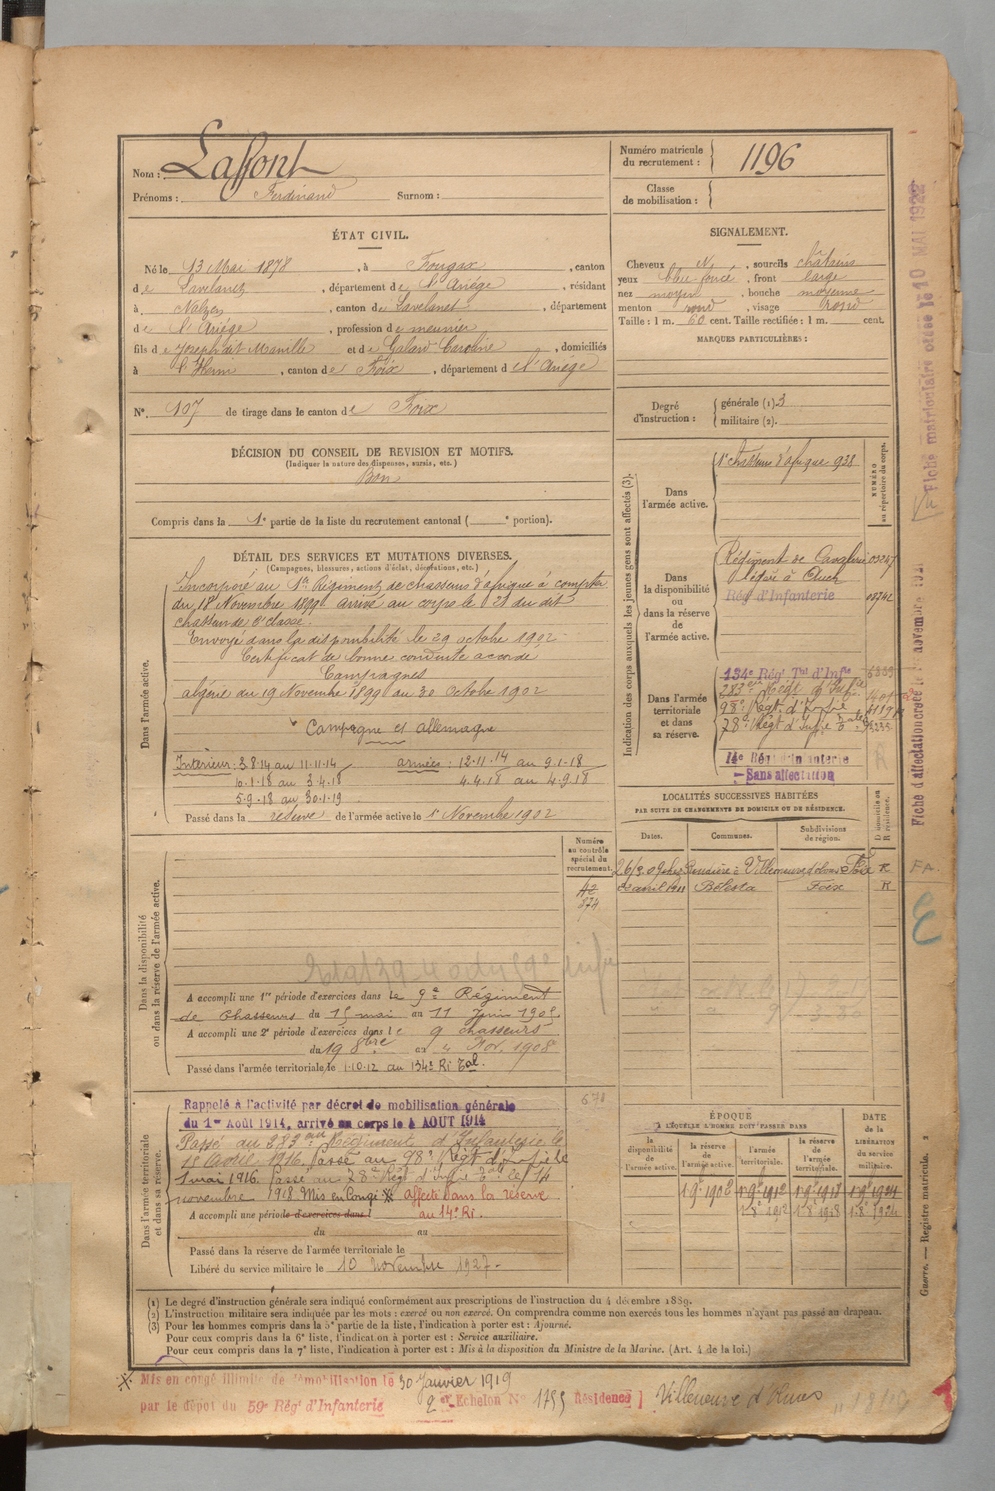 Nom : Laffont
Prénoms : Ferdinand Surnom :
Numéro matricule du recrutement : 1196
Classe de mobilisation :
ÉTAT CIVIL.
Né le 13 Mai 1878, à Fougax, canton
de Lavelanet, département de l'Ariége, résidant
à Nalzen, canton de Lavelanet, département
de l'Ariége, profession de meunier
fils de Joseph dit Manille et de Galard Caroline, domiciliés
à l'Herm, canton de Foix, département de l'Ariége
N°. 107 de tirage dans le canton de Foix
SIGNALEMENT.
Cheveux N, sourcils châtains
yeux bleu-foncé, front large
nez moyen, bouche moyenne
menton rond, visage Rond
Taille : 1 m. 60 cent. Taille rectifiée : 1 m. cent.
MARQUES PARTICULIÈRES :
Degré d'instruction : générale (1). 3
militaire (2).
DÉCISION DU CONSEIL DE REVISION ET MOTIFS.
(Indiquer la nature des dispenses, sursis, etc.)
Bon
Compris dans la 1e partie de la liste du recrutement cantonal ( e portion).
DÉTAIL DES SERVICES ET MUTATIONS DIVERSES.
(Campagnes, blessures, actions d'éclat, décorations, etc.)
Dans l'armée active.
Incorporé au 1er Régiment de chasseurs d'afrique à compter
du 18 Novembre 1899. arrivé au corps le 21 du dit
chasseur de 2e classe.
Envoyé dans la disponibilité le 29 octobre 1902
Certificat de bonne conduite accordé
Campagnes
algérie du 19 Novembre 1899 au 30 Octobre 1902
Campagne c/ allemagne
Intérieur : 3.8.14 au 11.11.14 armées : 12.11.14 au 9.1.18
10.1.18 au 3.4.18 4.4.18 au 4.9.18
5.9.18 au 30.1.19
Passé dans la réserve de l'armée active le 1er Novembre 1902
Indication des corps auxquels les jeunes gens sont affectés (3).
NUMÉRO au répertoire du corps.
Dans l'armée active.
1er chasseurs d'afrique 938
Dans la disponibilité ou dans la réserve de l'armée active.
Régiment de Cavalerie
Rég d'Infanterie
Dans l'armée territoriale et dans sa réserve.
134e Régt Tal d'Infie
283e Régt d'Infie
98e Régt d'Infie
78e Régt d'Infie
14e Rég d'Infanterie
Sans affectation
R
LOCALITÉS SUCCESSIVES HABITÉES
PAR SUITE DE CHANGEMENTS DE DOMICILE OU DE RÉSIDENCE.
Dates. Communes. Subdivisions de région. D domicile ou R résidence.
Villeneuve d'olmes Foix R
avril 1911 Bélesta Foix R
Numéro au contrôle spécial du recrutement.
42
374
Dans la disponibilité ou dans la réserve de l'armée active.
A accompli une 1re période d'exercices dans le 9e Régiment
de chasseurs du 15 mai au 11 Juin 190
A accompli une 2e période d'exercices dans le 9 chasseurs
du 19 8bre au 4 Nov. 1908
Passé dans l'armée territoriale le 1.10.12 au 134e Ri Tal.
Dans l'armée territoriale et dans sa réserve.
Rappelé à l'activité par décret de mobilisation générale
du 1er Août 1914, arrivé au corps le 4 AOUT 1914
Passé au 283eme Régiment d'Infanterie le
15 Avril 1916. Passé au 98e Régt d'Infie le
1 mai 1916. Passé au 78e Régt d'Infie le 14
novembre 1918. Mis en Congé Affecté dans la réserve
A accompli une période d'exercices dans l au 14e Ri.
du au
Passé dans la réserve de l'armée territoriale le
Libéré du service militaire le 10 novembre 1927.
ÉPOQUE
A LAQUELLE L'HOMME DOIT PASSER DANS
la disponibilité de l'armée active. la réserve de l'armée active. l'armée territoriale. la réserve de l'armée territoriale.
DATE de la LIBÉRATION du service militaire.
1 9e 1902 1 9e 1912 1 9e 1918 1 9e 1924
1 8e 1912 1 8e 1918 1 8e 1924
(1) Le degré d'instruction générale sera indiqué conformément aux prescriptions de l'instruction du 4 décembre 1889.
(2) L'instruction militaire sera indiquée par les mots : exercé ou non exercé. On comprendra comme non exercés tous les hommes n'ayant pas passé au drapeau.
(3) Pour les hommes compris dans la 5e partie de la liste, l'indication à porter est : Ajourné.
Pour ceux compris dans la 6e liste, l'indication à porter est : Service auxiliaire.
Pour ceux compris dans la 7e liste, l'indication à porter est : Mis à la disposition du Ministre de la Marine. (Art. 4 de la loi.)
Mis en congé illimité de démobilisation le 30 Janvier 1919
par le dépôt du 59e Rég' d'Infanterie 2e Echelon N° 1755 Résidence] Villeneuve d'Olmes
Fiche matriculaire créée le 10 MAI 1922
Fiche d'affectation créée le novembre
FA.
Guerre. — Registre matricule. 2